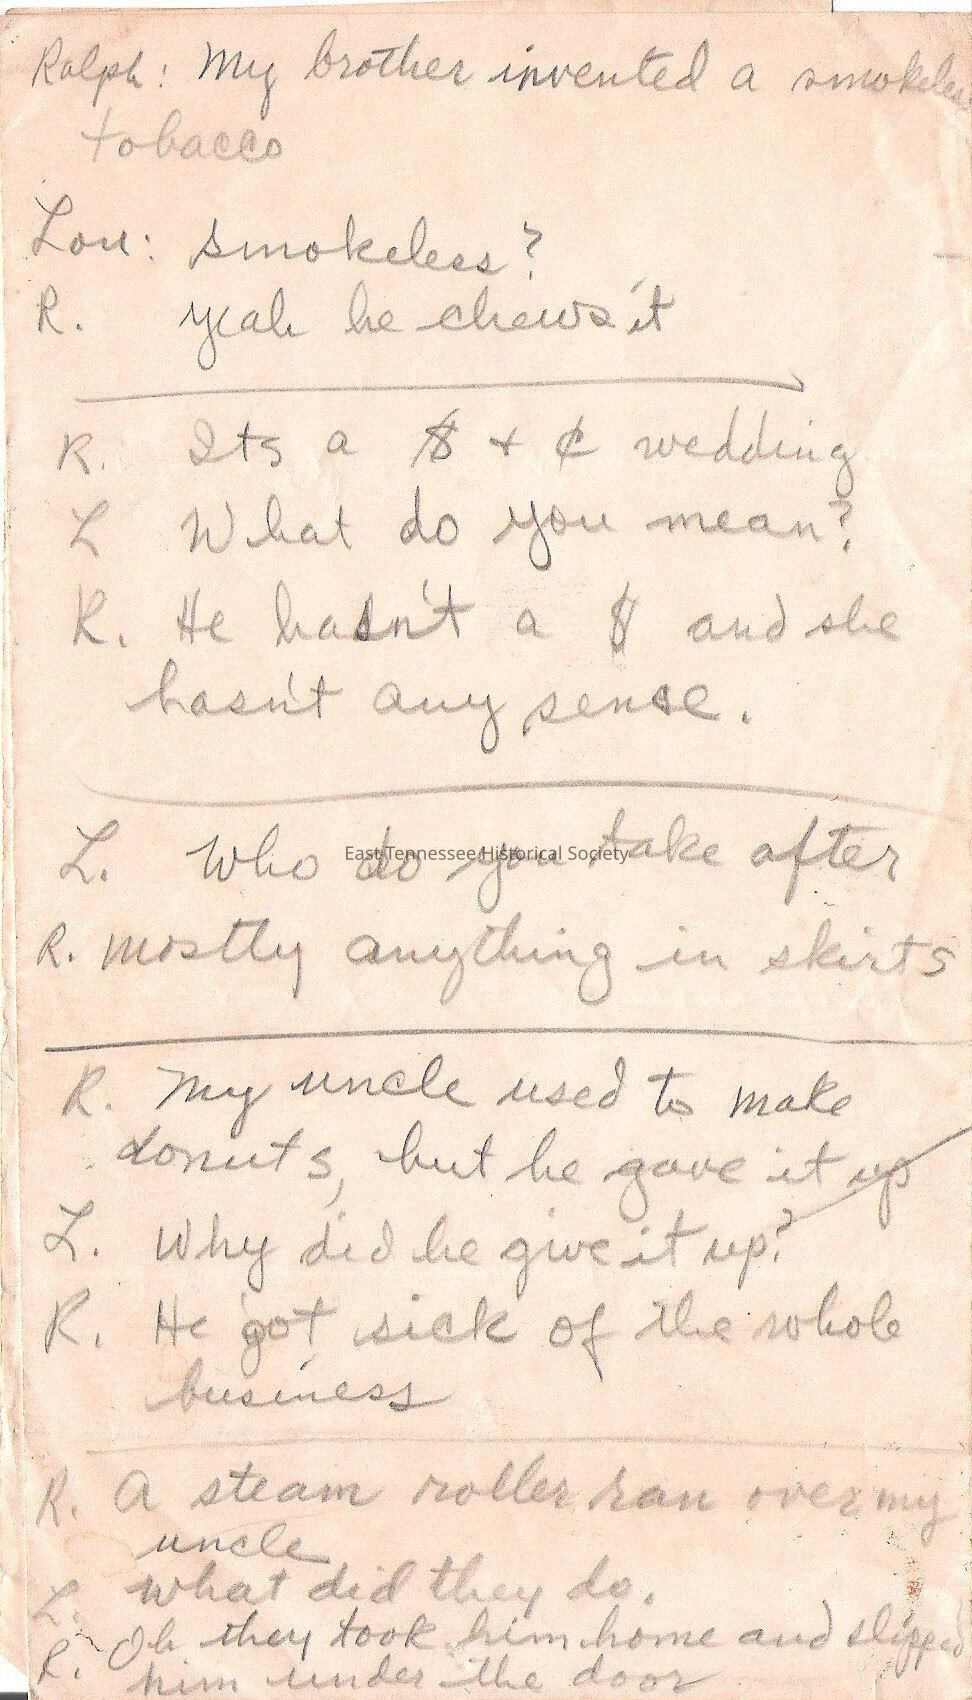 Ralph: My brother invented a smokeless
tobacco
Lou: smokeless?
R. yeah he chews it
R. Its a $ + ¢ wedding
L What do you mean?
R. He hasn't a $ and she
hasn't any sense.
L. Who do you take after
East Tennessee Historical Society
R. mostly anything in skirts
R. My uncle used to make
donuts, but he gave it up
L. Why did he give it up?
R. He got sick of the whole
business
R. A steam roller ran over my
uncle
L. What did they do.
R. Oh they took him home and slipped
him under the door